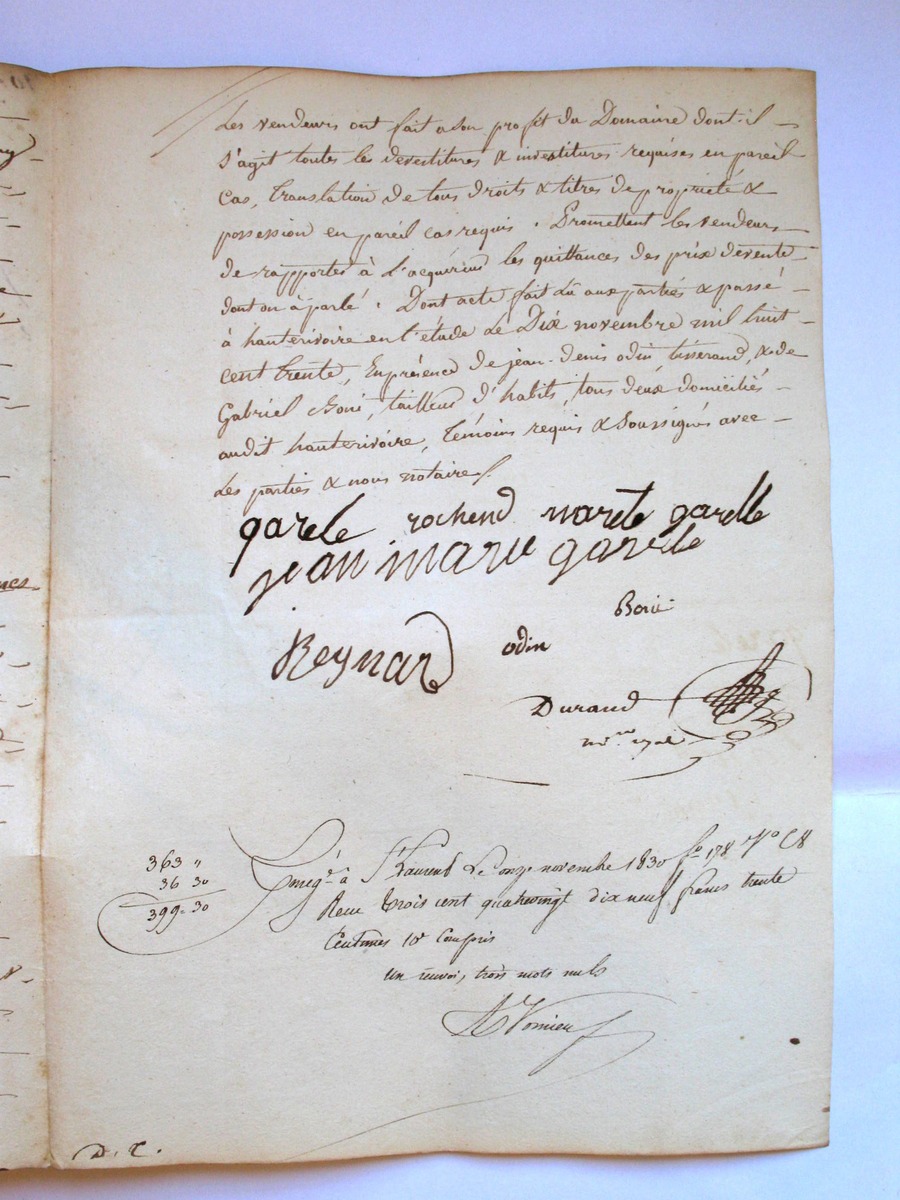 Les vendeurs ont fait a son profit du Domaine dont-il
s'agit toutes les devestitures & investitures requises en pareil
cas, translation de tous droits & titres de propriété &
possession en pareil cas requis. Promettent les vendeurs
de rapporter à L'acquéreur les quittances des prix de vente
dont on à parlé. Dont acte fait Lû aux parties & passé
à hauterivoire en l'étude Le Dix novembre mil huit
cent trente, En présence de jean-denis odin tisserand, & de
Gabriel Boni, tailleur d'habits, tous deux domiciliés
audit hauterivoire, témoins requis & soussignés avec
Les parties & nous notaire.
garele rochend garelle
jean marie garele
Boni
Reynard odin
Durand
363 "
36 30
399-30
Enregé. à St. Laurent Le onze novembre 1830 fo. 178 Vo C 8
Recu trois cent quatrevingt dix neuf francs trente
Centimes 10e Compris
un renvoi, trois mots nuls
D. C.